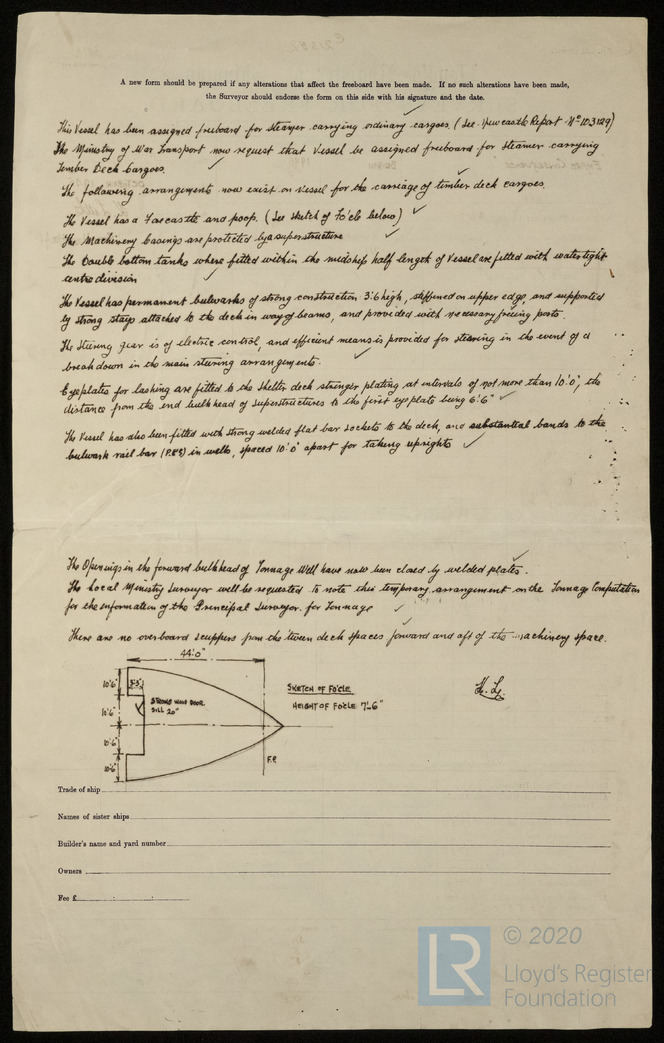 A new form should be prepared if any alterations that affect the freeboard have been made. If no such alterations have been made,
the Surveyor should endorse the form on this side with his signature and the date.
This Vessel has been assigned freeboard for steamer carrying ordinary cargoes. (See Newcastle Report Nº 103129)
The Ministry of War Transport now request that Vessel be assigned freeboard for steamer carrying
Timber Deck Cargoes.
The following arrangements now exist on Vessel for the carriage of timber deck cargoes.
The Vessel has a Forecastle and poop. (See sketch of Fo'cle below)
The Machinery Casings are protected by a superstructure
The Double bottom tanks where fitted within the midship half length of Vessel are fitted with watertight
centre division
The Vessel has permanent bulwarks of strong construction 3'.6 high, stiffened on upper edge, and supported
by strong stays attached to the deck in way of beams, and provided with necessary freeing ports.
The Steering gear is of electric control, and efficient means is provided for steering in the event of a
break down in the main steering arrangements.
Eyeplates for lashing are fitted to the shelter deck stringer plating at intervals of not more than 10'.0", the
distance from the end bulkhead of superstructures to the first eyeplate being 6'.6"
The Vessel has also been fitted with strong welded flat bar sockets to the deck, and substantial bands to the
bulwark rail bar (P&S) in wells, spaced 10'.0" apart for taking uprights
The Openings in the forward bulkhead of Tonnage Well have now been closed by welded plates.
The Local Ministry Surveyor will be requested to note this temporary arrangement on the Tonnage Computation
for the information of the Principal Surveyor. for Tonnage
There are no overboard scuppers from the 'tween deck spaces forward and aft of the machinery space.
44'.0"
10'6"
5'.3"
STRONG WOOD DOOR
SILL 20"
10'.6"
10'.6"
10'.6"
F.P.
SKETCH OF FO'CLE
HEIGHT OF FO'CLE 7'.6"
Trade of ship
Names of sister ships
Builder's name and yard number
Owners
Fee £
LR
© 2020
Lloyd's Register
Foundation